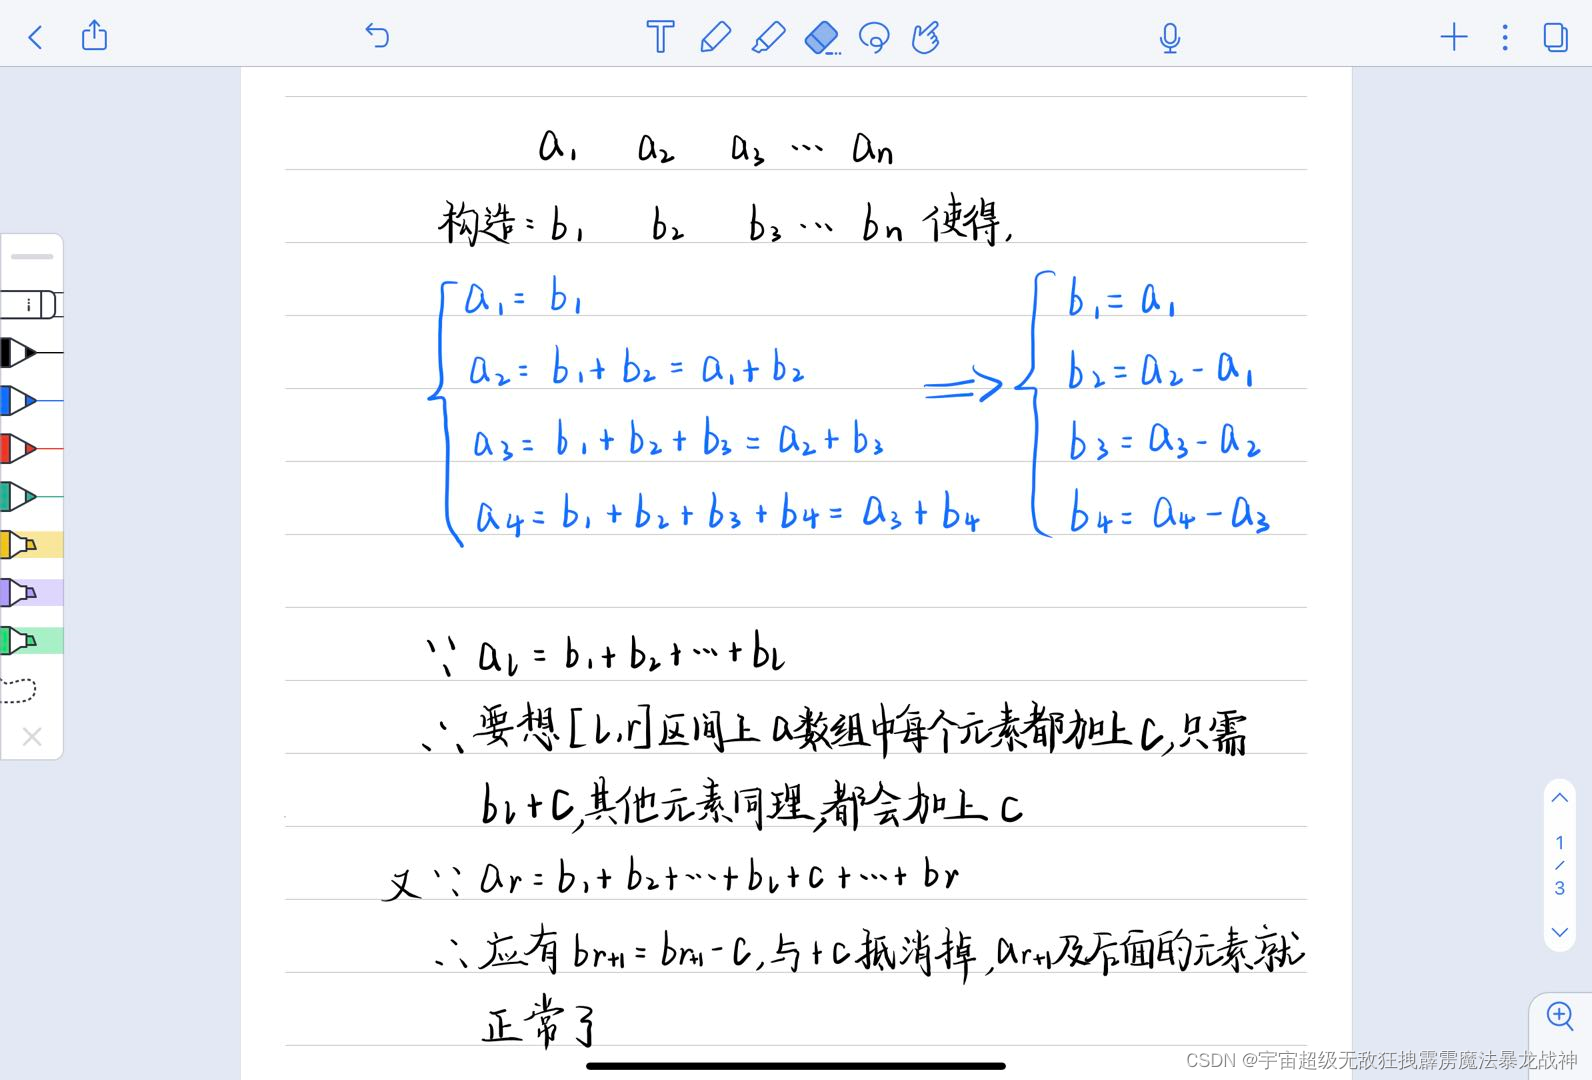 a₁ a₂ a₃ … aₙ
构造: b₁ b₂ b₃ … bₙ 使得,
a₁ = b₁
a₂ = b₁ + b₂ = a₁ + b₂
a₃ = b₁ + b₂ + b₃ = a₂ + b₃
a₄ = b₁ + b₂ + b₃ + b₄ = a₃ + b₄
⇒
b₁ = a₁
b₂ = a₂ - a₁
b₃ = a₃ - a₂
b₄ = a₄ - a₃
∵ aₗ = b₁ + b₂ + … + bₗ
∴ 要想[l,r]区间上a数组中每个元素都加上c,只需
bₗ + c,其他元素同理,都会加上c
又∵ aᵣ = b₁ + b₂ + … + bₗ + c + … + bᵣ
∴ 应有 bᵣ₊₁ = bᵣ₊₁ - c,与+c抵消掉,aᵣ₊₁及后面的元素就
正常了
1
/
3
CSDN @宇宙超级无敌狂拽霹雳魔法暴龙战神